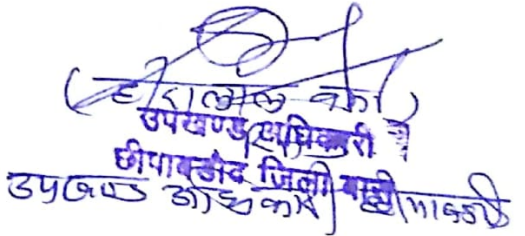 (हीरालाल वर्मा)
उपखण्ड अधिकारी
छीपाबड़ौद जिला बारां
उपखण्ड अधिकारी छीपाबड़ौद